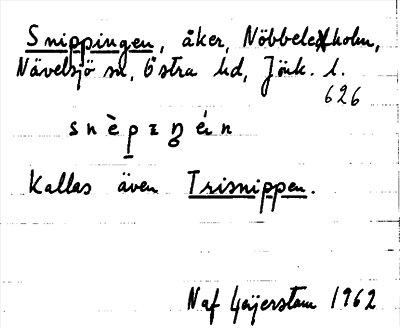 Snippingen, åker, Nöbbeleholm,
Nävelsjö sn, Östra hd, Jönk. l.
626
snèpɪŋén
Kallas även Trisnippen.
Naf Gaijerstam 1962